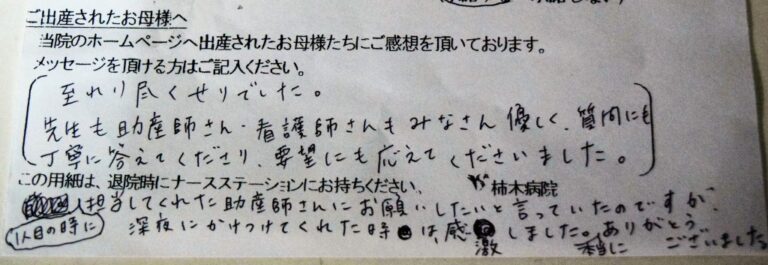 ご出産されたお母様へ
当院のホームページへ出産されたお母様たちにご感想を頂いております。
メッセージを頂ける方はご記入ください。
至れり尽くせりでした。
先生も助産師さん・看護師さんもみなさん優しく、質問にも
丁寧に答えてくださり、要望にも応えてくださいました。
この用紙は、退院時にナースステーションにお持ちください。 柿木病院
担当してくれた助産師さんにお願いしたいと言っていたのですが、
1人目の時に 深夜にかけつけてくれた時は、感激しました。本当にありがとうございました